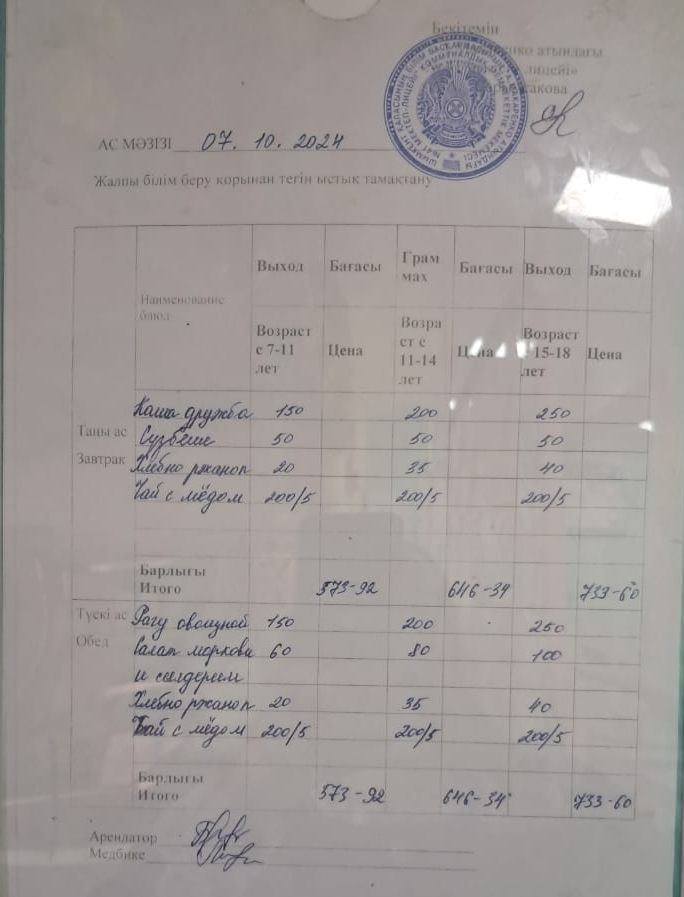 Бекітемін
атындағы
лицейі»
АС МӘЗІЗІ 07. 10. 2024
Жалпы білім беру қорынан тегін ыстық тамақтану
Наименование блюд Выход Бағасы Грам мах Бағасы Выход Бағасы
Возраст с 7-11 лет Цена Возра ст с 11-14 лет Цена Возраст 15-18 лет Цена
Таңғы ас
Завтрак
Каша дружба 150 200 250
Сузбеше 50 50 50
Хлебно ржаноп 20 35 40
Чай с мёдом 200/5 200/5 200/5
Барлығы
Итого 573-92 646-34 733-60
Түскі ас
Обед
Рагу овощной 150 200 250
Салат моркови 60 80 100
и сельдереем
Хлебно ржаноп 20 35 40
Чай с мёдом 200/5 200/5 200/5
Барлығы
Итого 573-92 646-34 733-60
Арендатор
Медбике